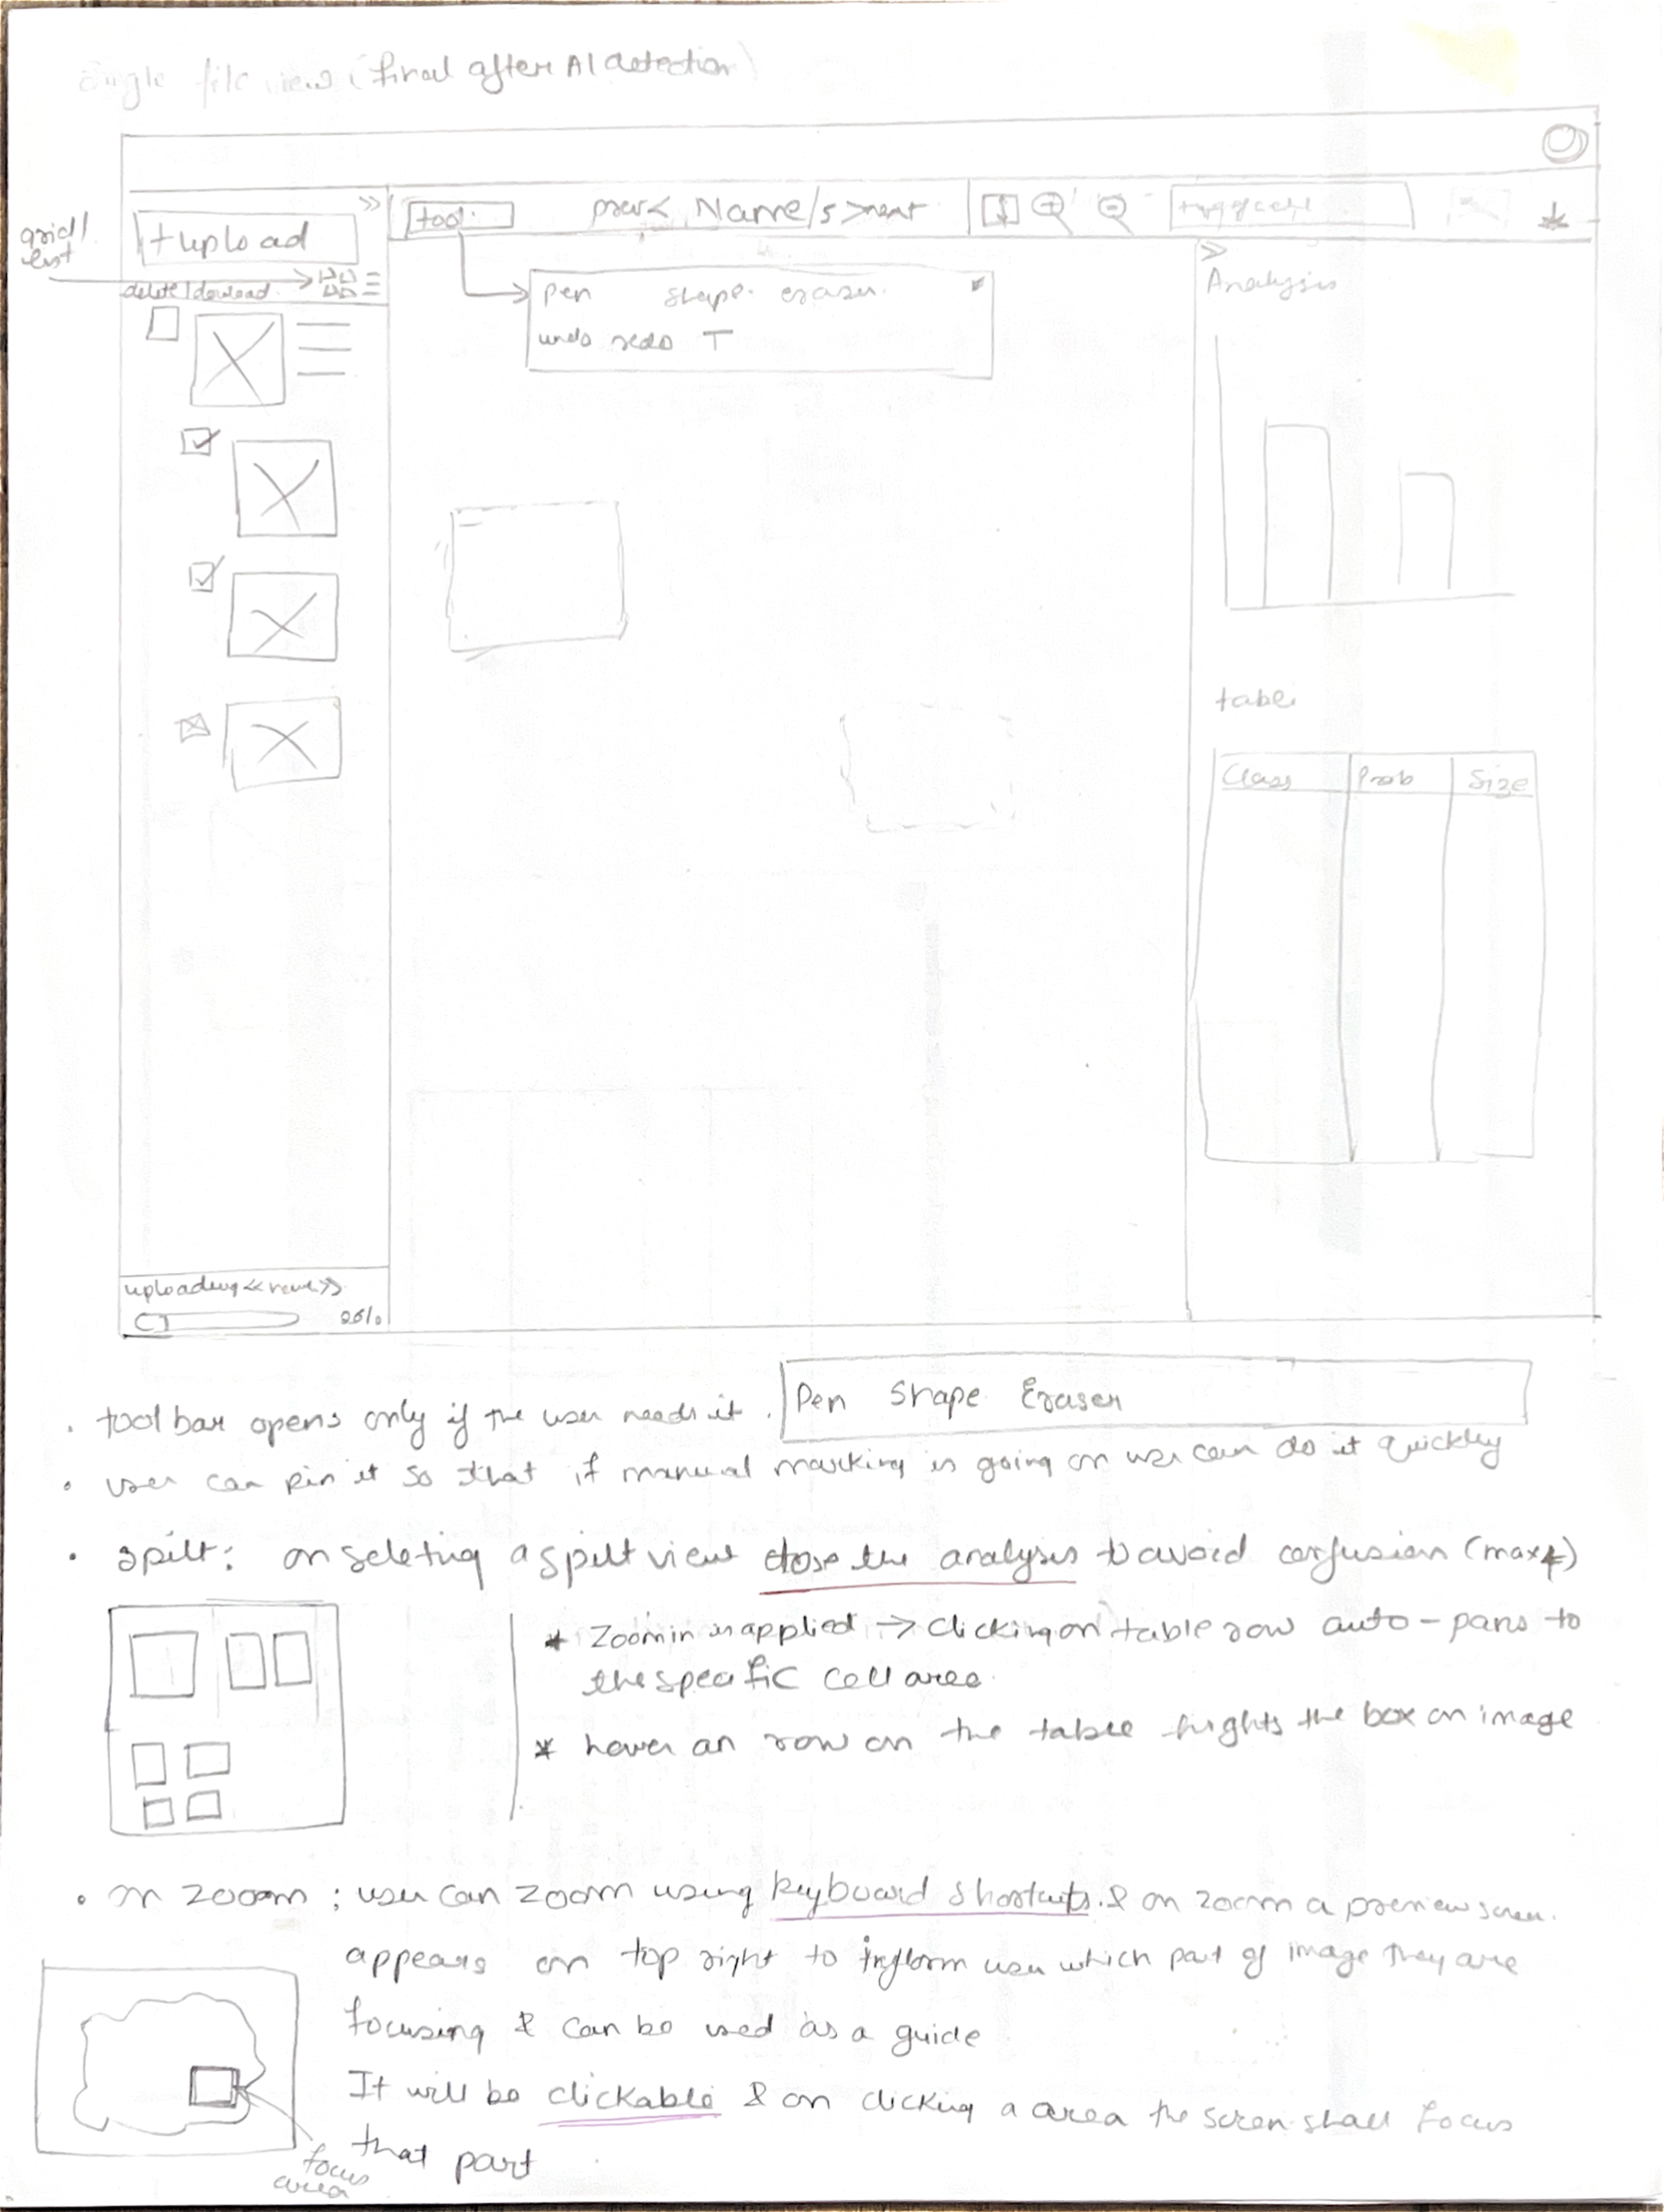 Single file view (final after AI detection)
grid/
list
+upload
tool
prev< Name/s >next
delete/download
pen shape eraser
undo redo T
Analysis
table
Class Prob Size
uploading <<name>>
Pen Shape Eraser
. toolbar opens only if the user needs it.
. user can pin it so that if manual marking is going on user can do it quickly
. spilt: on seleting a spilt view close the analysis to avoid confusion (max 4)
* Zoom in is applied → clicking on table row auto-pans to
the specific cell area.
* hover an row on the table hights the box on image
. on zoom ; user can zoom using keyboard shortcuts. & on zoom a preview screen.
appears on top right to inform user which part of image they are
focusing & can be used as a guide
It will be clickable & on clicking a area the screen shall focus
that part
focus
area